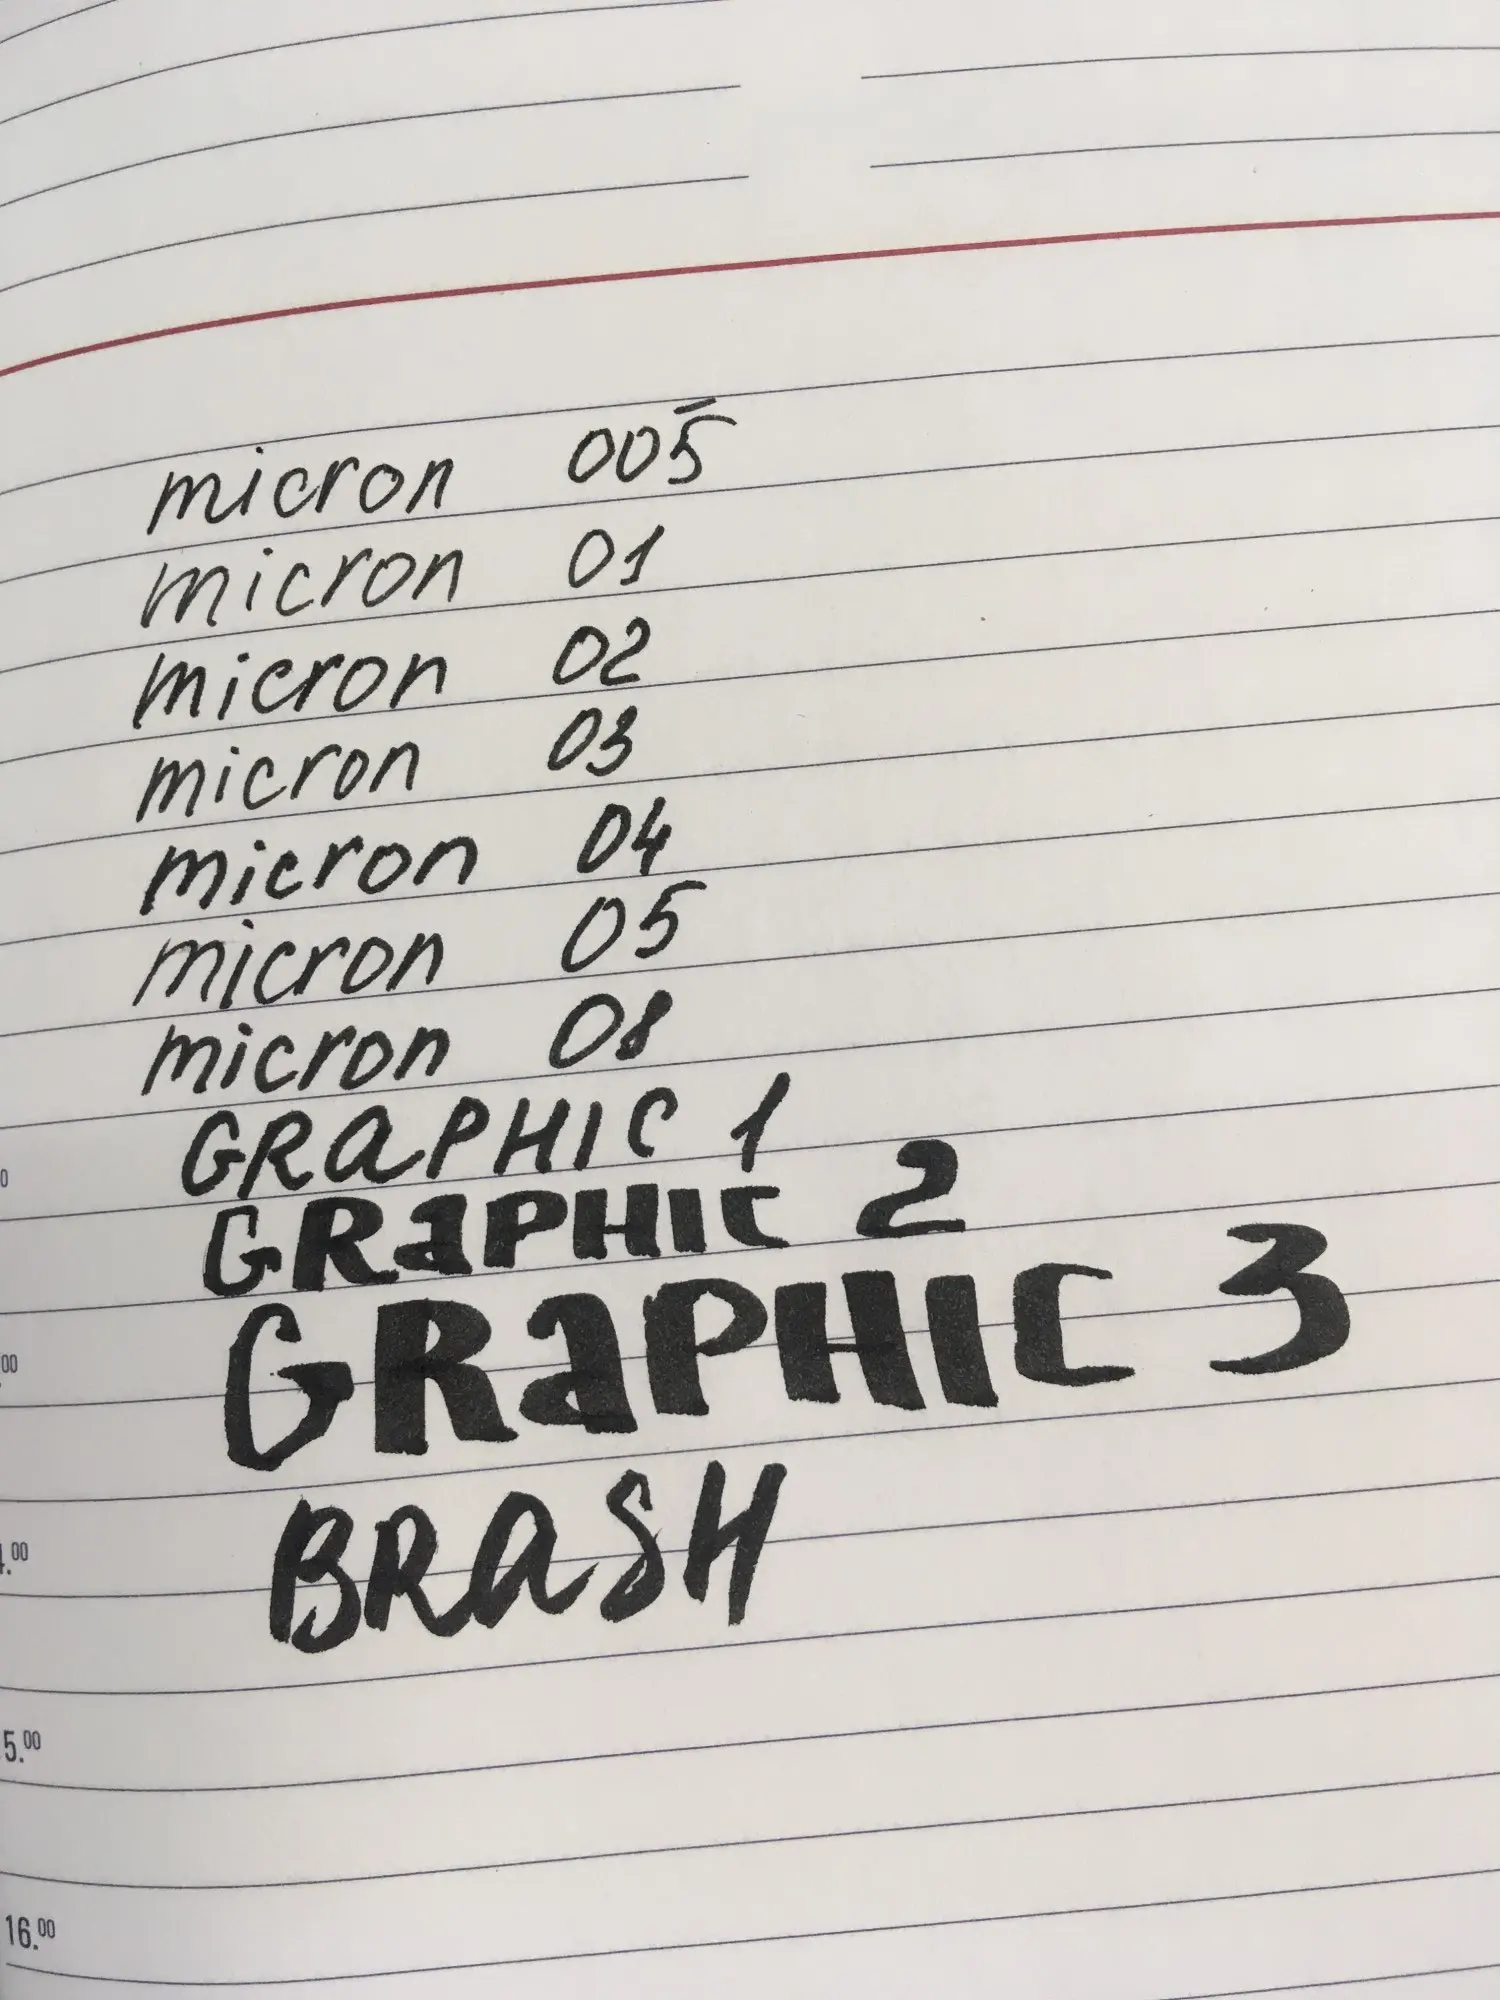 micron 005
micron 01
micron 02
micron 03
micron 04
micron 05
micron 08
GRaPHIC 1
GRaPHIC 2
GRaPHIC 3
BRaSH
5.00
16.00